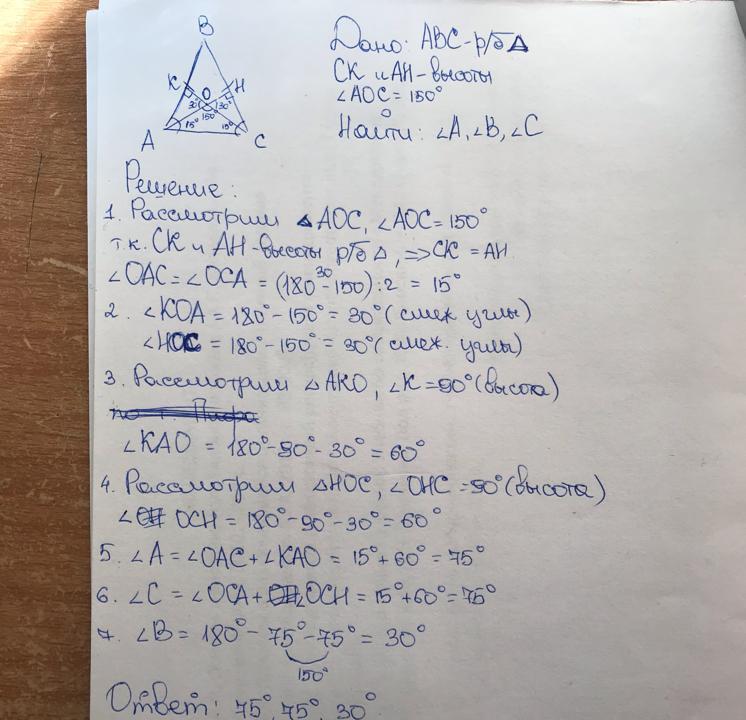 B
K
H
O
30°
30°
150°
15°
15°
A
C
Дано: ABC - р/б Δ
CK и AH - высоты
∠AOC = 150°
Найти: ∠A, ∠B, ∠C
Решение:
1. Рассмотрим ΔAOC, ∠AOC = 150°
т.к. CK и AH - высоты р/б Δ, => CK = AH
30
∠OAC = ∠OCA = (180° - 150) : 2 = 15°
2. ∠KOA = 180° - 150° = 30° (смеж углы)
∠HOC = 180° - 150° = 30° (смеж. углы)
3. Рассмотрим ΔAKO, ∠K = 90° (высота)
∠KAO = 180° - 90° - 30° = 60°
4. Рассмотрим ΔHOC, ∠OHC = 90° (высота)
∠OCH = 180° - 90° - 30° = 60°
5. ∠A = ∠OAC + ∠KAO = 15° + 60° = 75°
6. ∠C = ∠OCA + ∠OCH = 15° + 60° = 75°
7. ∠B = 180° - 75° - 75° = 30°
150°
Ответ: 75°, 75°, 30°